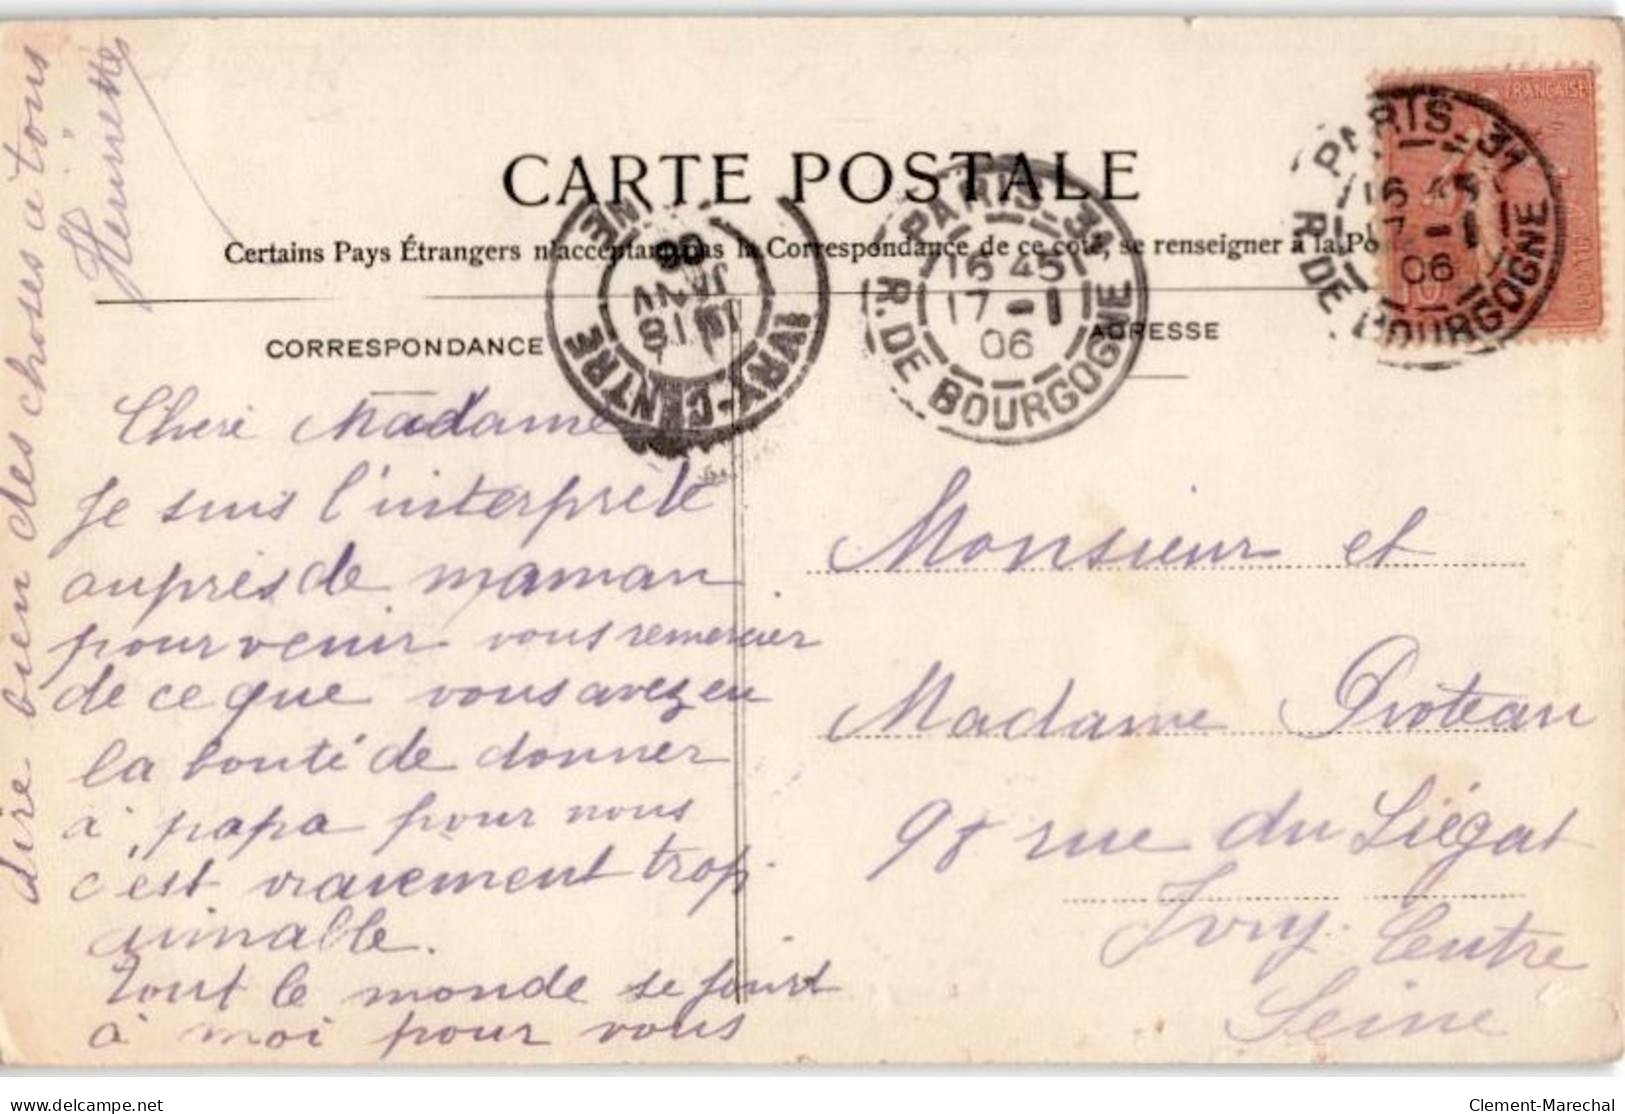 CARTE POSTALE
Certains Pays Étrangers n'acceptant pas la Correspondance de ce coté, se renseigner à la Po
CORRESPONDANCE
ADRESSE
FRANÇAISE
PARIS-31
16 45
17-1
06
R. DE BOURGOGNE
PARIS-31
16 45
17-1
06
R. DE BOURGOGNE
IVRY-CENTRE
18
JANV
06
Cheré Madame
Je suis l'interprete
auprès de maman
pour venir vous remercier
de ce que vous avez eu
la bonté de donner
à papa pour nous
c'est vraiement trop
aimable.
Tout le monde se joint
à moi pour vous
dire bien des choses a tous
Henriette
Monsieur et
Madame Proteau
98 rue du Liégat
Ivry. Centre
Seine
Clement-Marechal